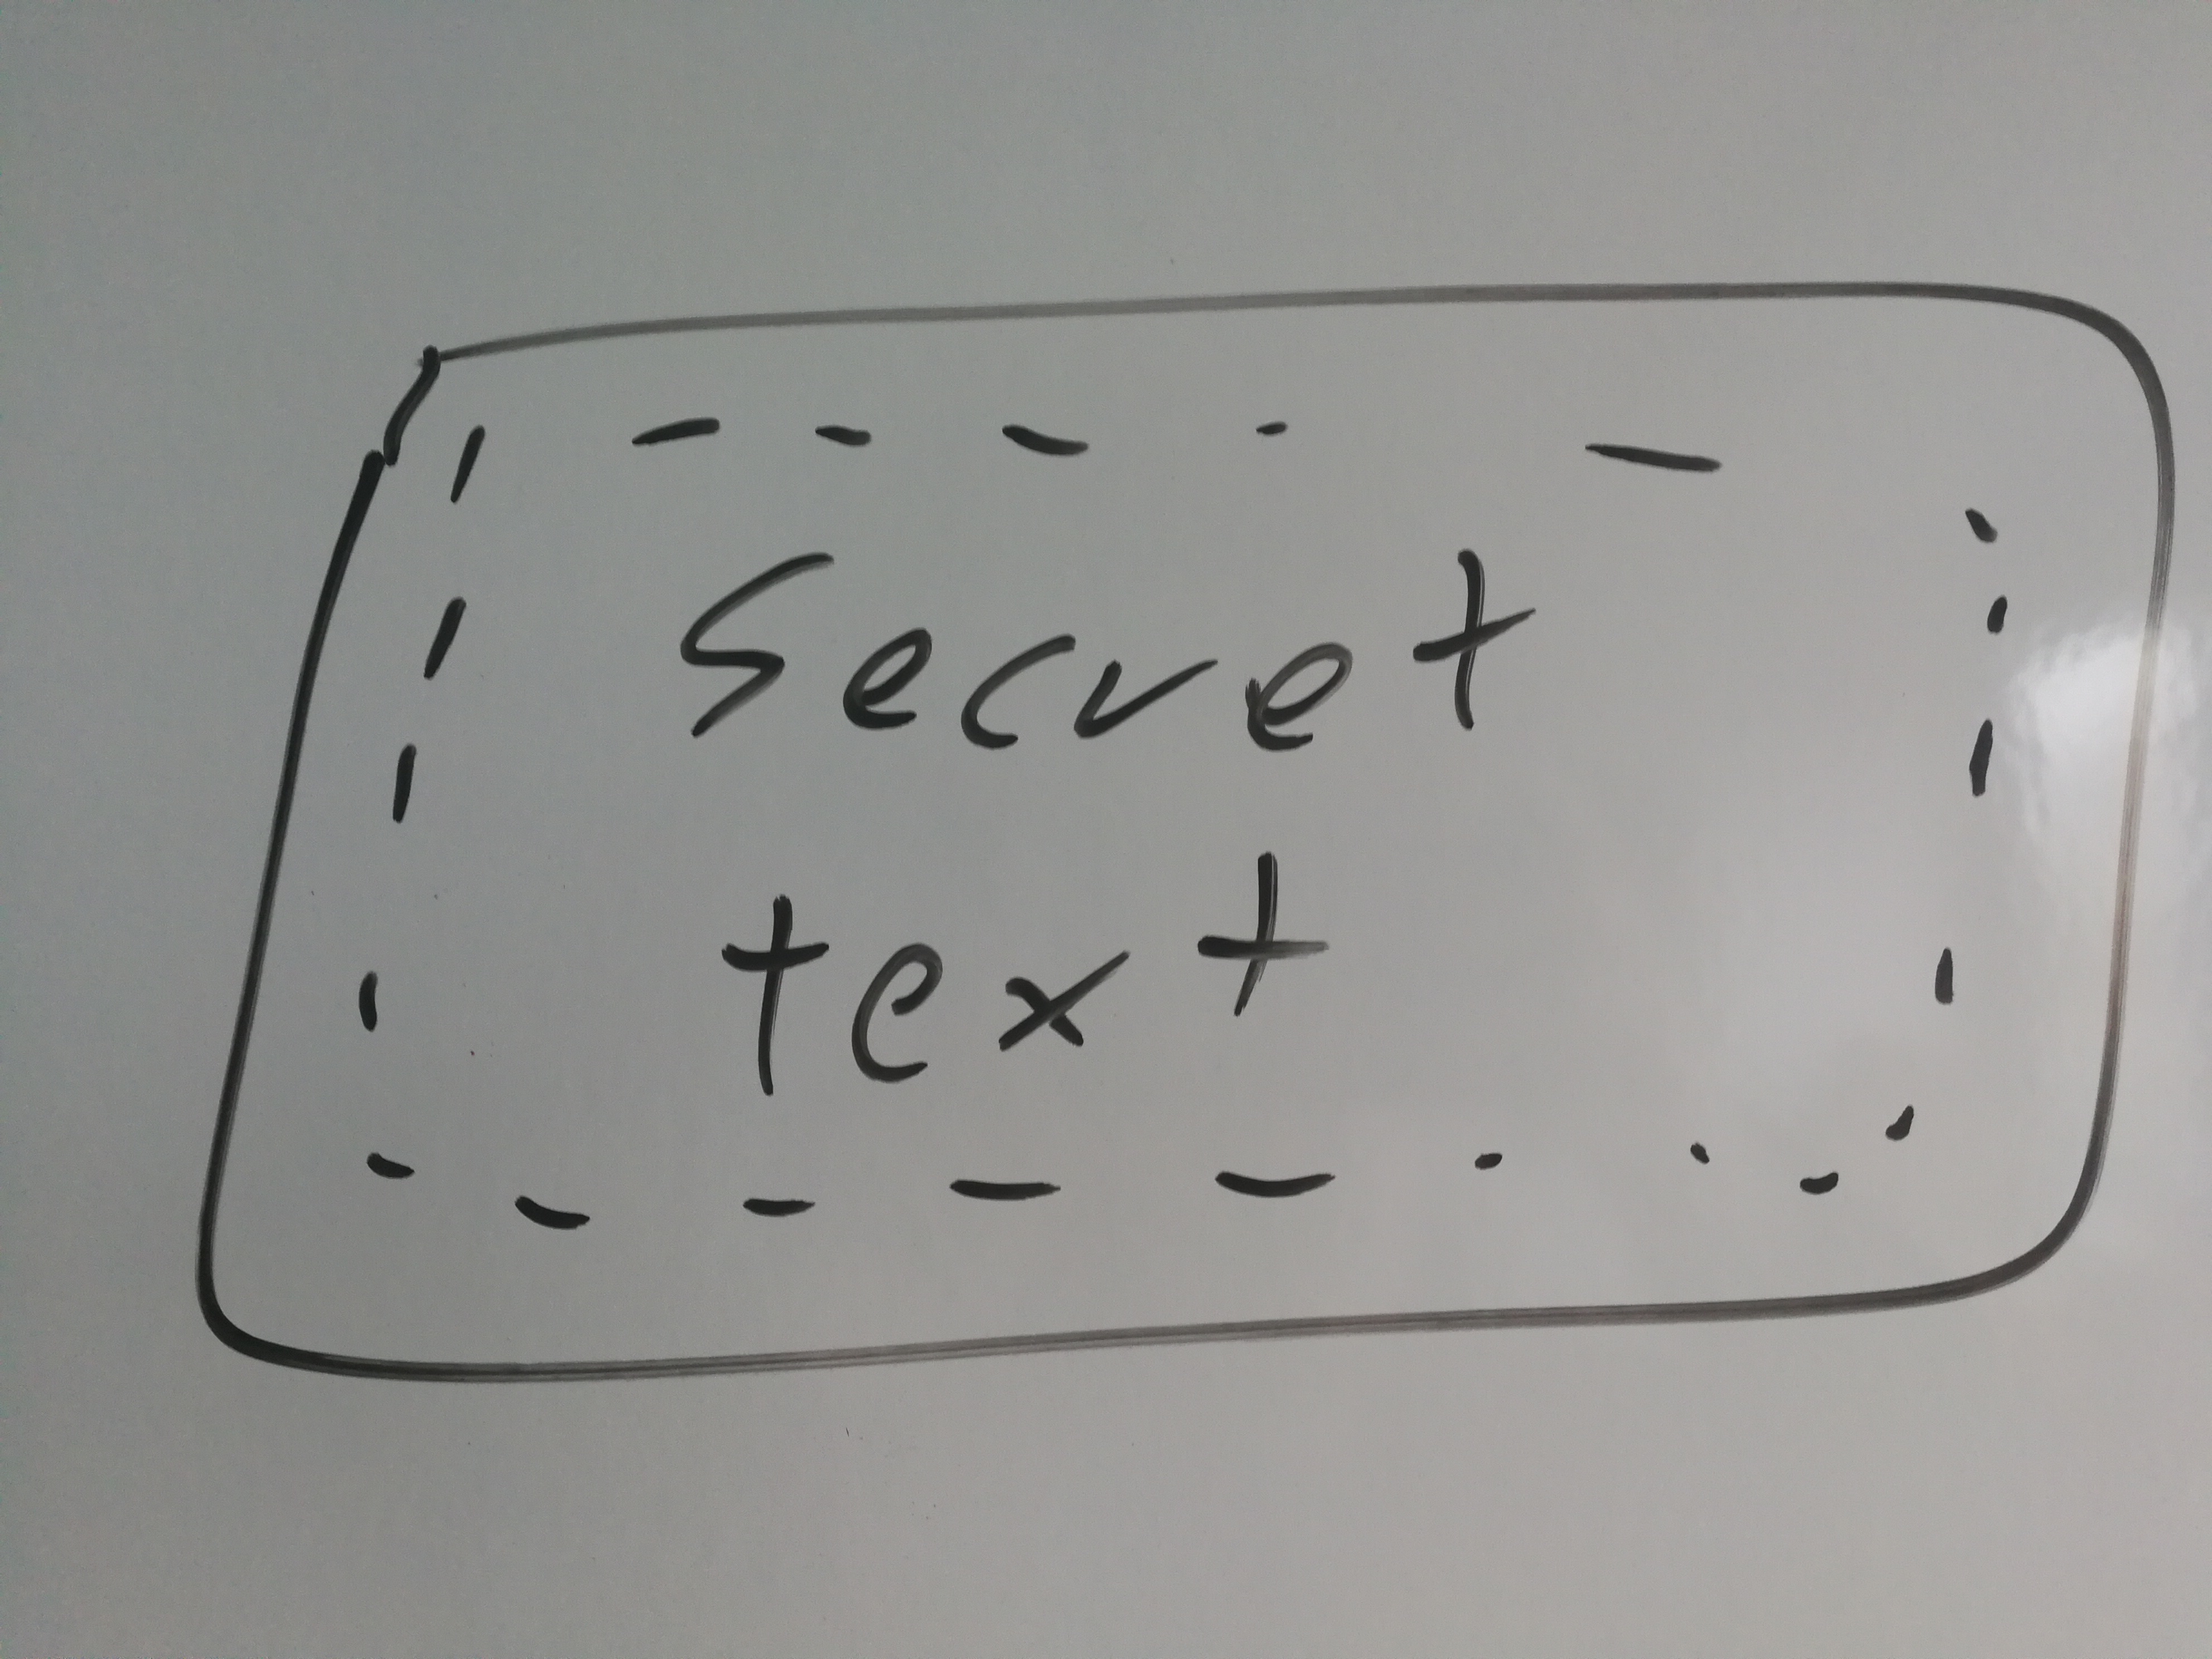 Secret
text